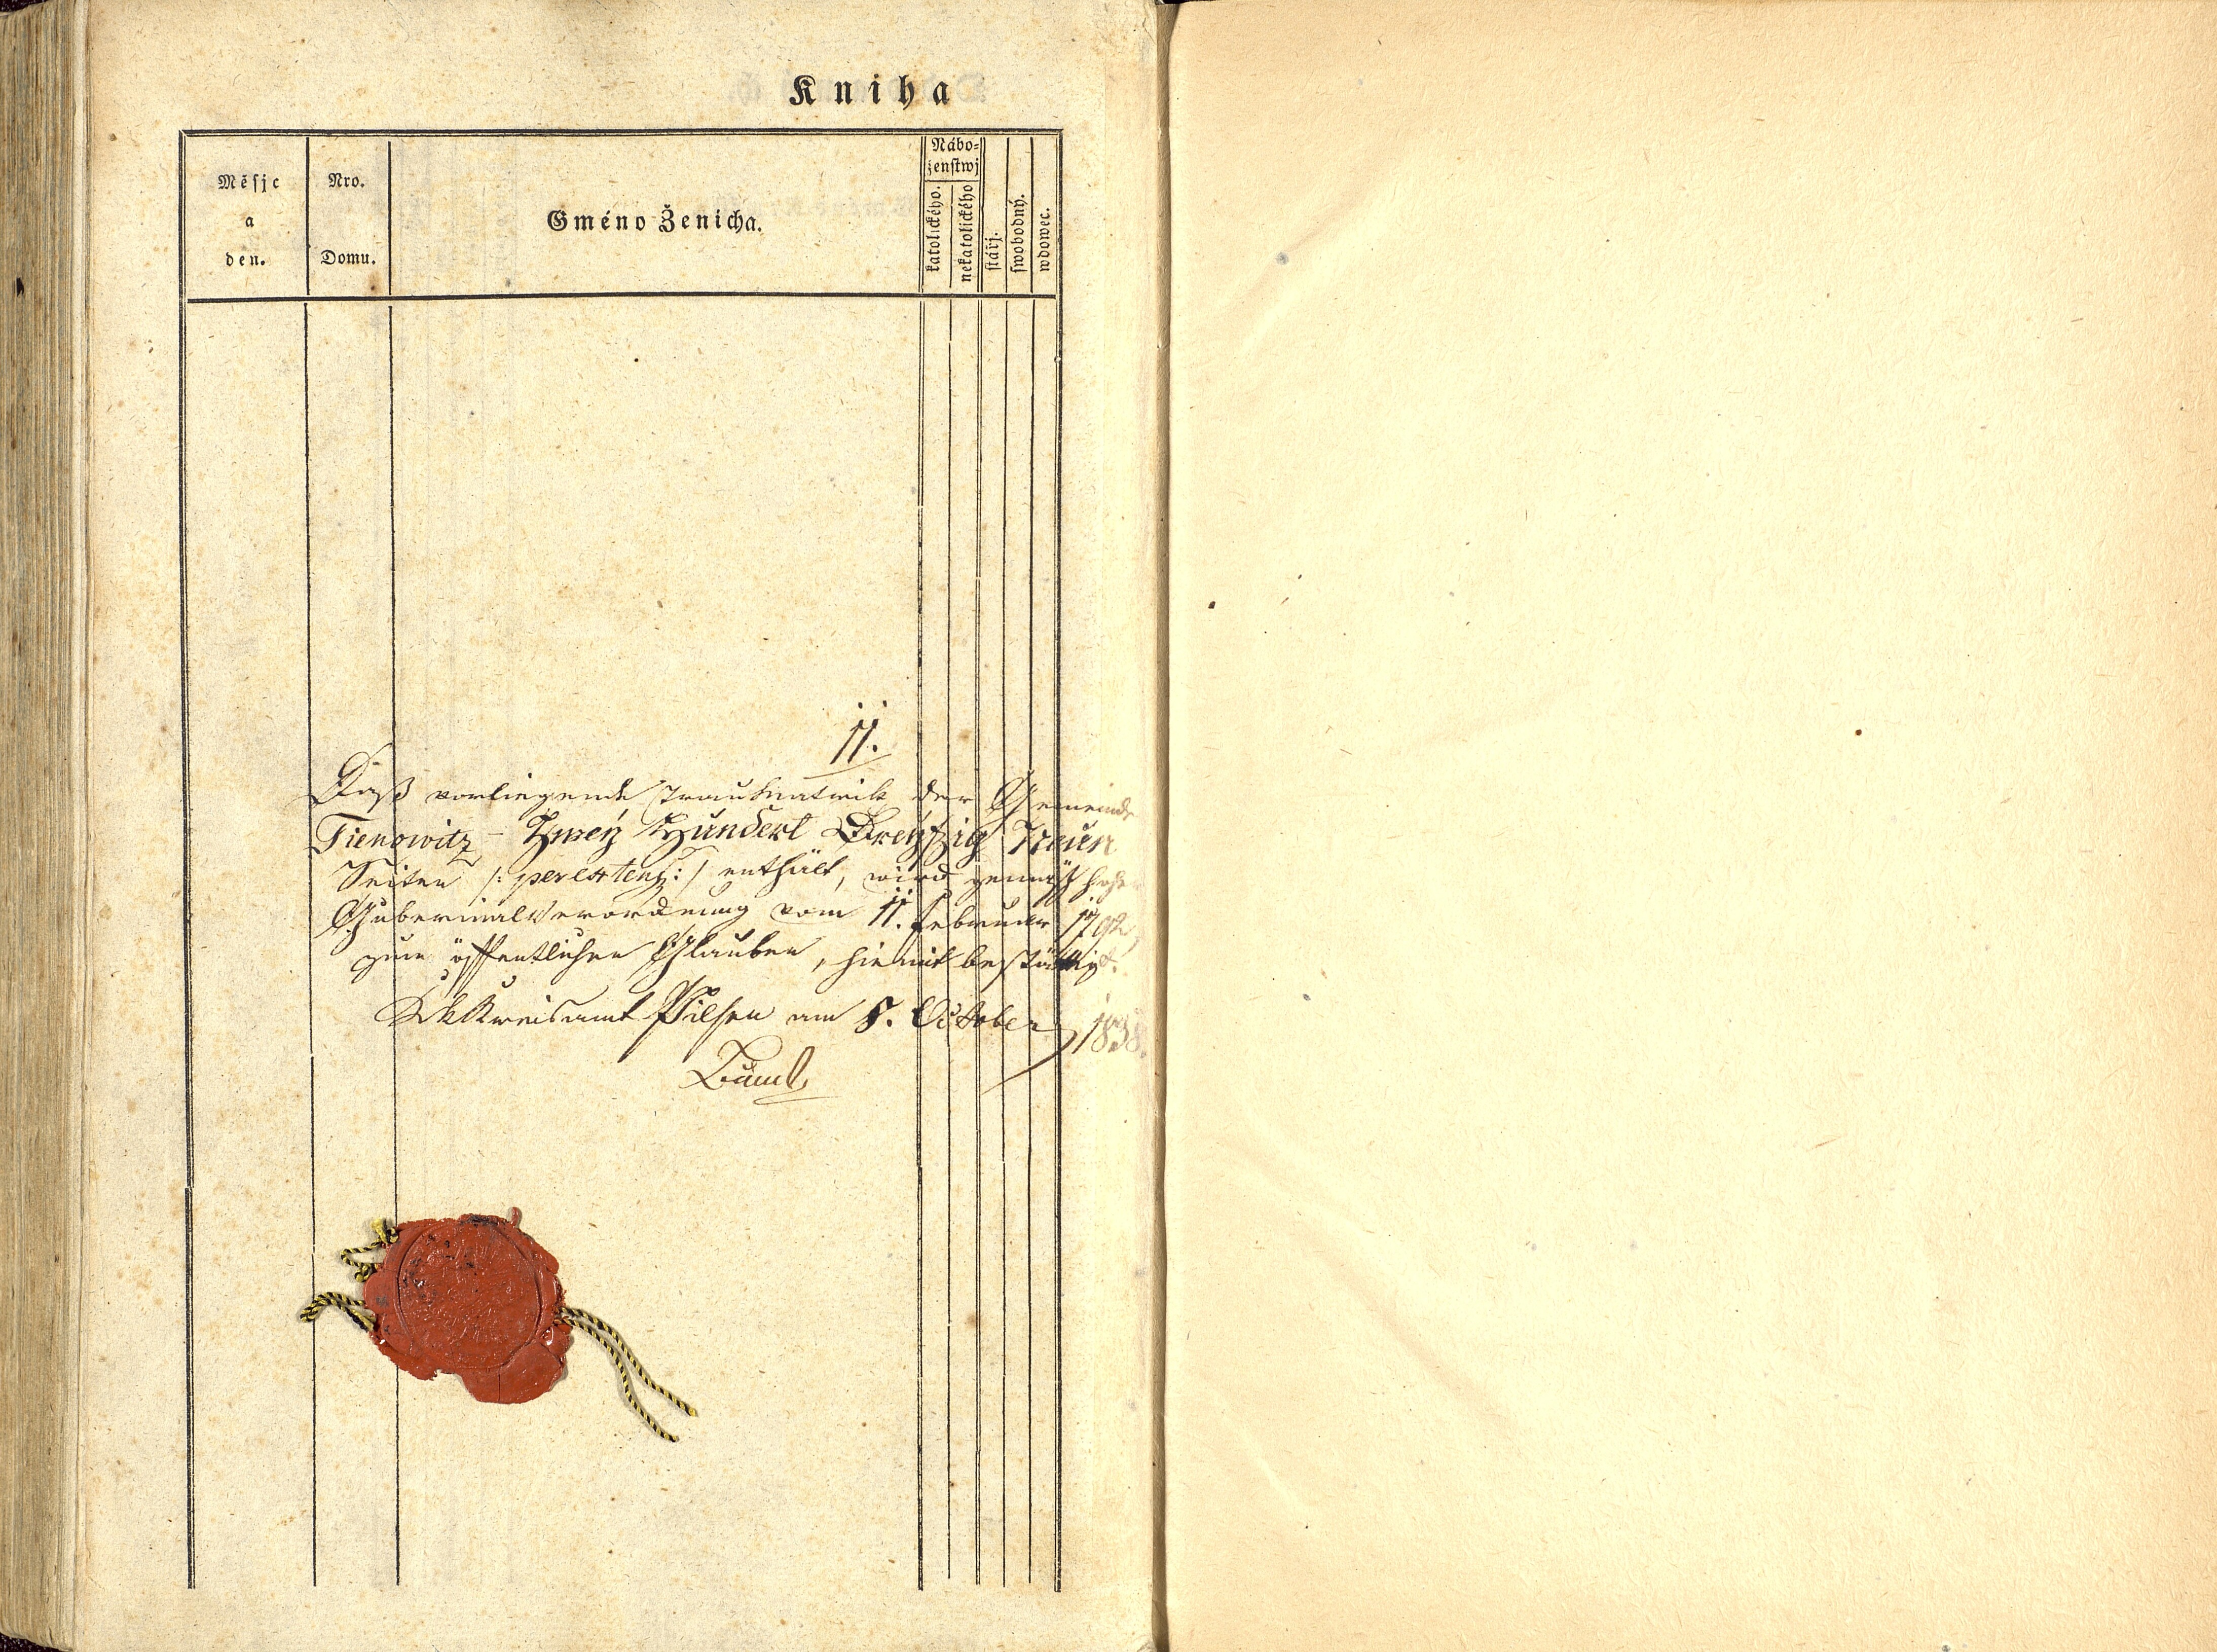 Kniha
Měsjc
a
den.
Nro.
Domu.
Gméno Ženicha.
Nábo-
ženstwj
katolického.
nekatolického
stářj.
swobodný.
wdowec.
11.
Daß vorliegende Traumatrik der Gemeinde
Tienowitz - Zwey Hundert Dreyßig Neun
Seiten /: :/ enthält, wird gemäß hoher
Gubernialverordnung vom 11. Februar 1792,
zum öffentlichen Glauben, hiemit bestättigt.
KKKreisamt Pilsen am 8. October 1838.